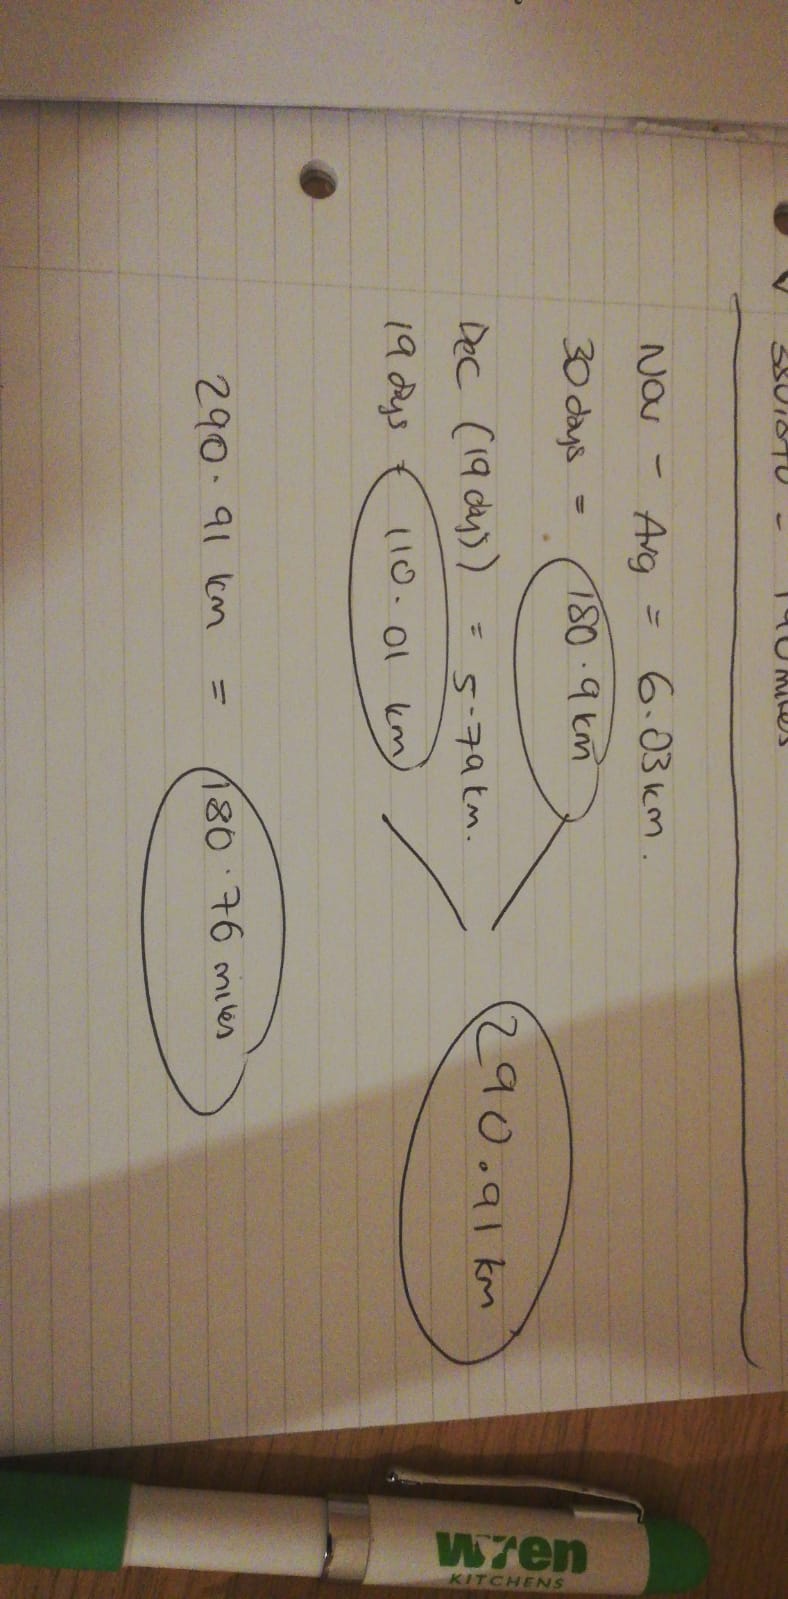 190 miles
Nov - Avg = 6.03km.
30 days = 180.9km
Dec (19 days) = 5.79km.
19 days = 110.01 km
290.91 km
290.91 km = 180.76 miles
wren
KITCHENS